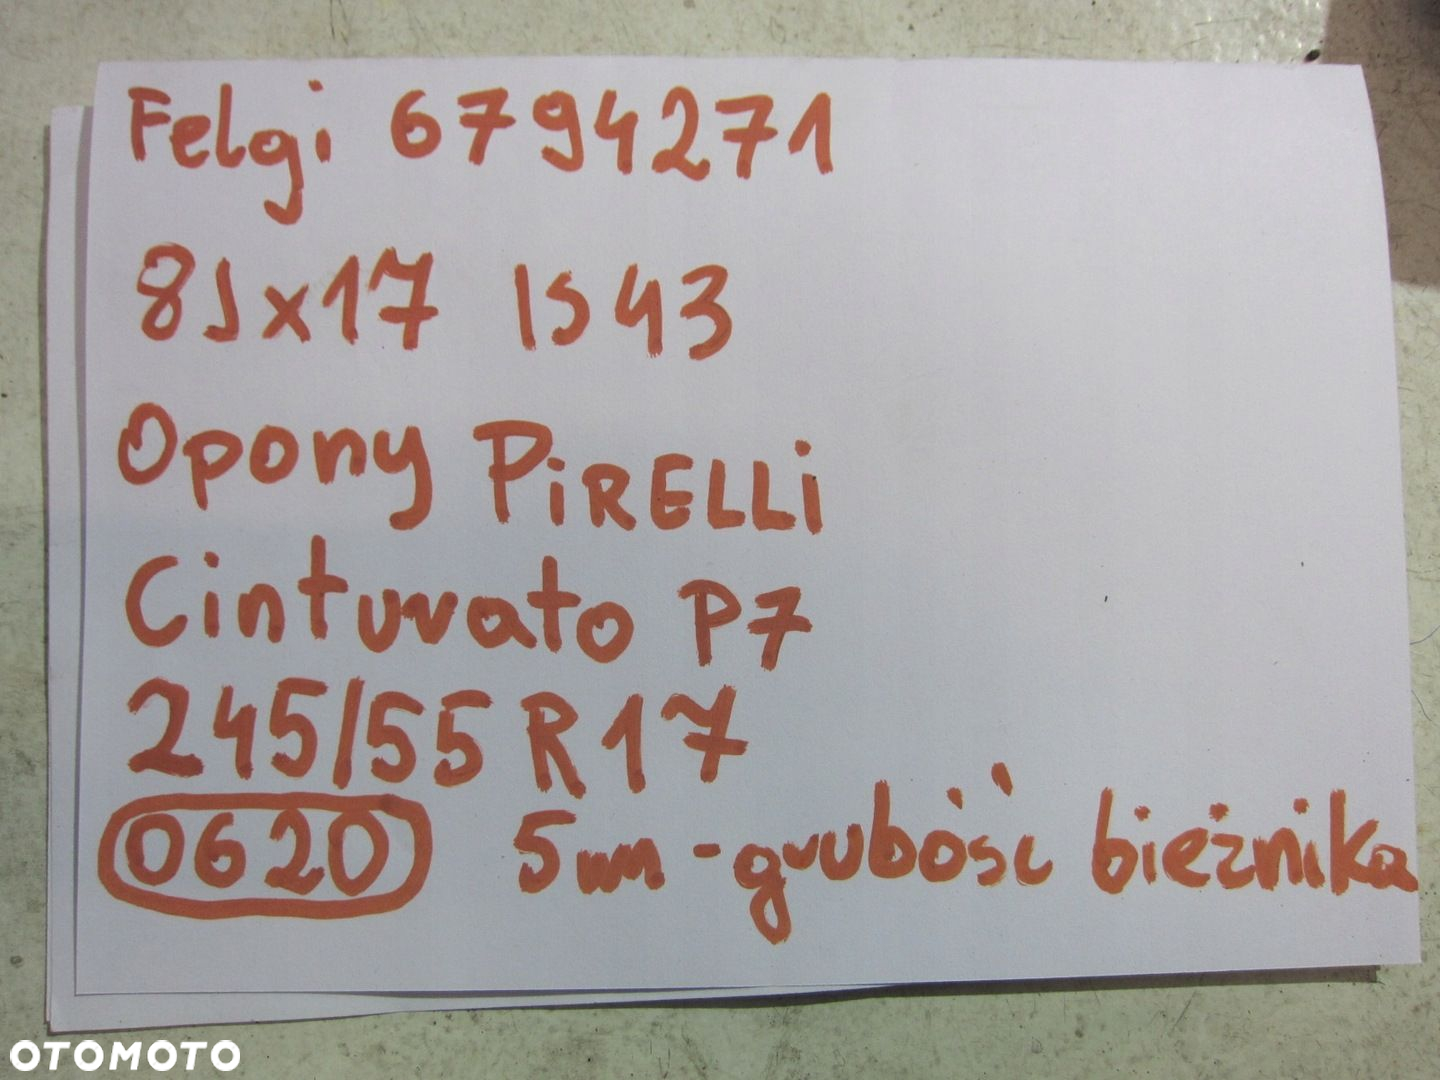 Felgi 6794271
8Jx17 IS43
Opony PiRELLi
Cinturato P7
245/55 R17
0620 5mm - grubość bieżnika
OTOMOTO